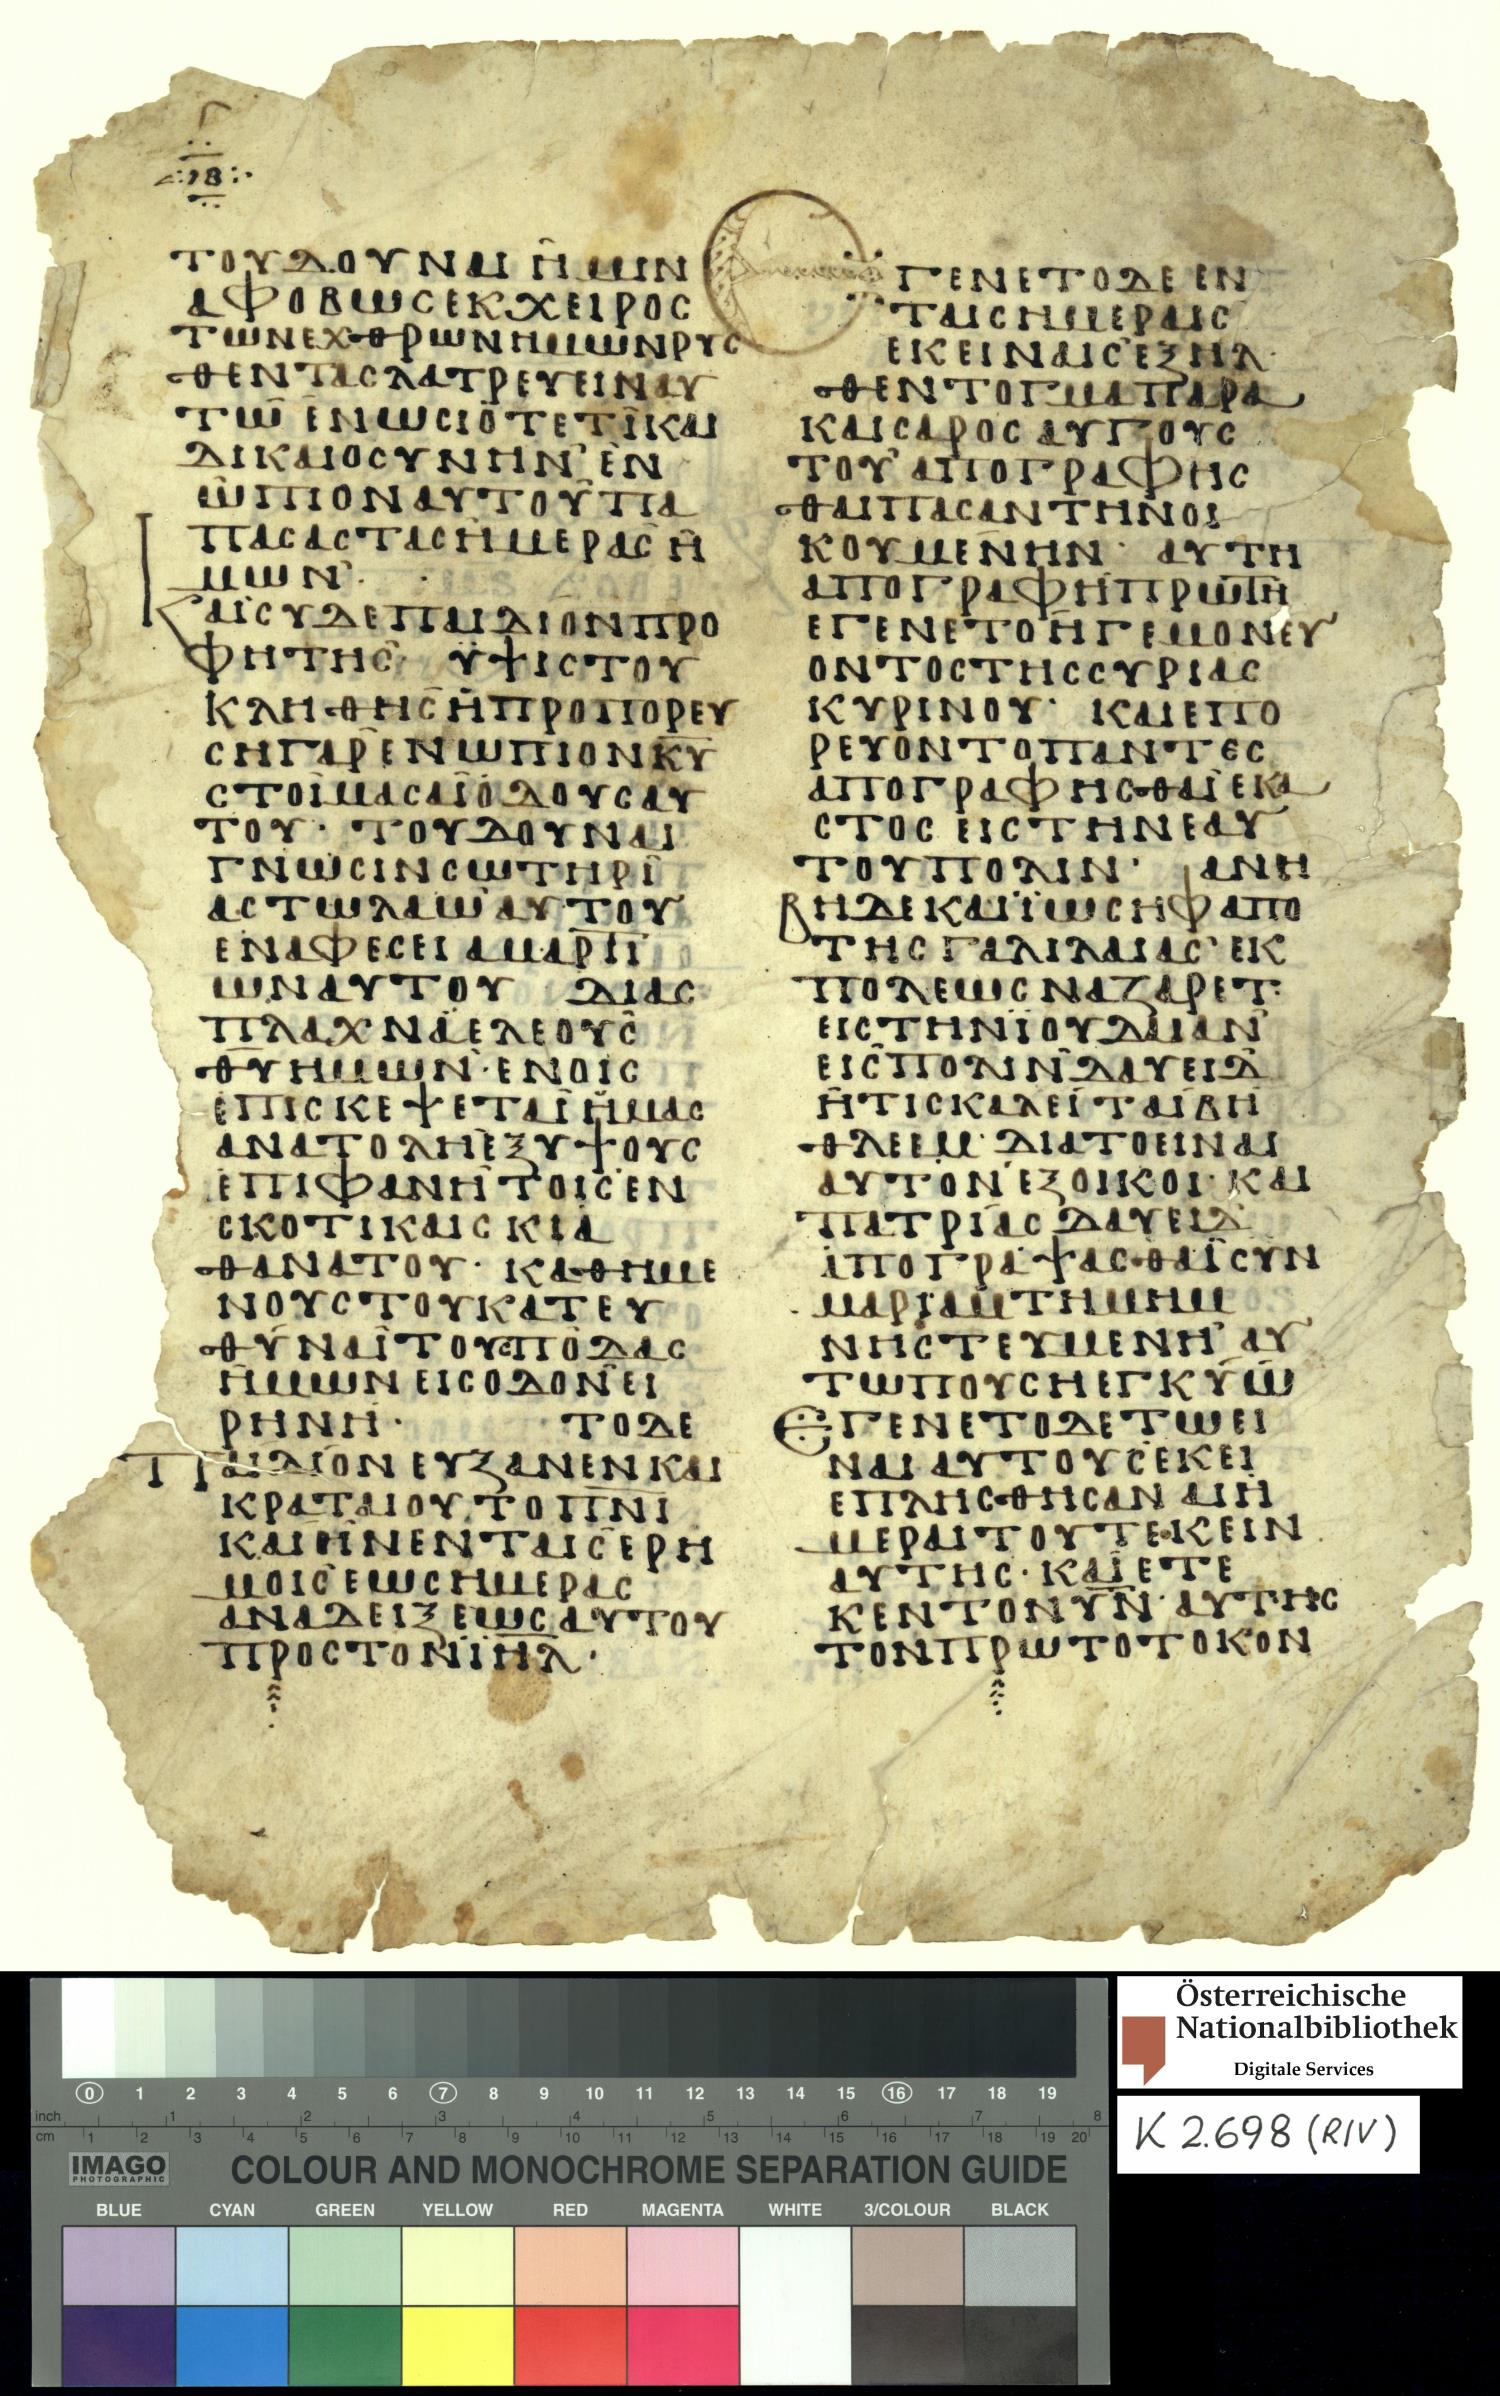 ⲒⲂ
ΤΟΥΔΟΥΝΑΙΗΜΙΝ
ΑΦΟΒΩCΕΚΧΕΙΡΟC
ΤΩΝΕΧΘΡΩΝΗΜΩΝΡΥC
ΘΕΝΤΑCΛΑΤΡΕΥΕΙΝΑΥ
ΤΩΕΝΩCΙΟΤΕΤΙΚΑΙ
ΔΙΚΑΙΟCΥΝΗΝ ΕΝ
ΩΠΙΟΝΑΥΤΟΥΠΑ
ΠΑCΑCΤΑCΗΜΕΡΑCΗ
ΜΩΝ·
ΚΑΙCΥΔΕΠΑΙΔΙΟΝΠΡΟ
ΦΗΤΗC ΫΨΙCΤΟΥ
ΚΛΗΘΗCΗΠΡΟΠΟΡΕΥ
CΗΓΑΡΕΝΩΠΙΟΝΚ̅Υ̅
CΤΟΙΜΑCΑΙΟΔΟΥCΑΥ
ΤΟΥ· ΤΟΥΔΟΥΝΑΙ
ΓΝΩCΙΝCΩΤΗΡΙ
ΑCΤΩΛΑΩΑΥΤΟΥ
ΕΝΑΦΕCΕΙΑΜΑΡΤΙ
ΩΝΑΥΤΟΥ ΔΙΑC
ΠΛΑΧΝΑΕΛΕΟΥC
Θ̅Υ̅ΗΜΩΝ·ΕΝΟΙC
ΕΠΙCΚΕΨΕΤΑΙΗΜΑC
ΑΝΑΤΟΛΗΕΞΥΨΟΥC
ΕΠΙΦΑΝΗΤΟΙCΕΝ
CΚΟΤΙΚΑΙCΚΙΑ
ΘΑΝΑΤΟΥ· ΚΑΘΗΜΕ
ΝΟΥCΤΟΥΚΑΤΕΥ
ΘΥΝΑΙΤΟΥCΠΟΔΑC
ΗΜΩΝΕΙCΟΔΟΝΕΙ
ΡΗΝΗ· ΤΟΔΕ
ΠΑΙΔΙΟΝΕΥΞΑΝΕΝΚΑΙ
ΚΡΑΤΑΙΟΥΤΟΠ̅Ν̅Ι̅
ΚΑΙΗΝΕΝΤΑΙCΕΡΗ
ΜΟΙCΕΩCΗΜΕΡΑC
ΑΝΑΔΕΙΞΕΩCΑΥΤΟΥ
ΠΡΟCΤΟΝΪ̅Η̅Λ̅·
ΕΓΕΝΕΤΟΔΕΕΝ
ΤΑΙCΗΜΕΡΑΙC
ΕΚΕΙΝΑΙCΕΞΗΛ
ΘΕΝΤΟΓΜΑΠΑΡΑ
ΚΑΙCΑΡΟCΑΥΓΟΥC
ΤΟΥ ΑΠΟΓΡΑΦΗC
ΘΑΙΠΑCΑΝΤΗΝΟΙ
ΚΟΥΜΕΝΗΝ· ΑΥΤΗ
ΑΠΟΓΡΑΦΗΠΡΩΤΗ
ΕΓΕΝΕΤΟΗΓΕΜΟΝΕΥ
ΟΝΤΟCΤΗCCΥΡΙΑC
ΚΥΡΙΝΟΥ· ΚΑΙΕΠΟ
ΡΕΥΟΝΤΟΠΑΝΤΕC
ΑΠΟΓΡΑΦΗCΘΑΙΕΚΑ
CΤΟCΕΙCΤΗΝΕΑΥ
ΤΟΥΠΟΛΙΝ· ΑΝΗ
ΒΗΔΕΚΑΙΪΩCΗΦΑΠΟ
ΤΗCΓΑΛΙΛΑΙΑC ΕΚ
ΠΟΛΕΩCΝΑΖΑΡΕΤ·
ΕΙCΤΗΝΪΟΥΔΑΙΑΝ
ΕΙCΠΟΛΙΝΔΑΥΕΙΔ
ΗΤΙCΚΑΛΕΙΤΑΙΒΗ
ΘΛΕΕΜ·ΔΙΑΤΟΕΙΝΑΙ
ΑΥΤΟΝ ΕΞΟΙΚΟΙ·ΚΑΙ
ΠΑΤΡΙΑC ΔΑΥΕΙΔ
ΑΠΟΓΡΑΨΑCΘΑΙCΥΝ
ΜΑΡΙΑΜΤΗΜΗΜ
ΝΗCΤΕΥΜΕΝΗ ΑΥ
ΤΩΠΟΥCΗΕΓΚΥΩ
ΕΓΕΝΕΤΟΔΕΤΩΕΙ
ΝΑΙΑΥΤΟΥCΕΚΕΙ
ΕΠΛΗCΘΗCΑΝΑΙΗ
ΜΕΡΑΙΤΟΥΤΕΚΕΙΝ
ΑΥΤΗC·ΚΑΙΕΤΕ
ΚΕΝΤΟΝΥ̅Ν̅ ΑΥΤΗC
ΤΟΝΠΡΩΤΟΤΟΚΟΝ
Österreichische
Nationalbibliothek
Digitale Services
K 2.698 (RIV)
0 1 2 3 4 5 6 7 8 9 10 11 12 13 14 15 16 17 18 19
inch 1 2 3 4 5 6 7 8
cm 1 2 3 4 5 6 7 8 9 10 11 12 13 14 15 16 17 18 19 20
IMAGO
PHOTOGRAPHIC
COLOUR AND MONOCHROME SEPARATION GUIDE
BLUE CYAN GREEN YELLOW RED MAGENTA WHITE 3/COLOUR BLACK